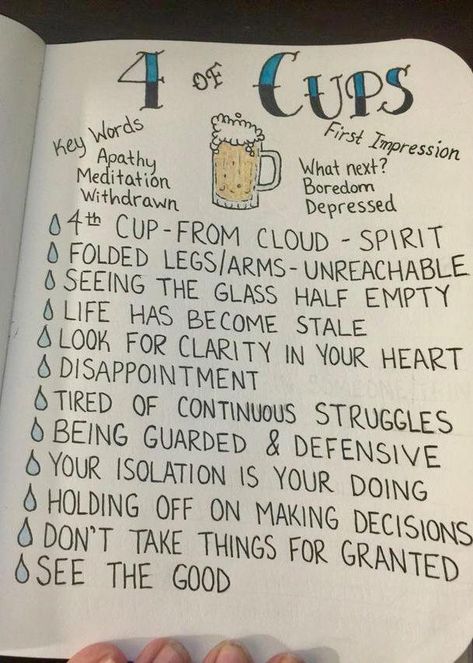 4 OF CUPS
Key Words
Apathy
Meditation
Withdrawn
First Impression
What next?
Boredom
Depressed
4th CUP - FROM CLOUD - SPIRIT
FOLDED LEGS/ARMS - UNREACHABLE
SEEING THE GLASS HALF EMPTY
LIFE HAS BECOME STALE
LOOK FOR CLARITY IN YOUR HEART
DISAPPOINTMENT
TIRED OF CONTINUOUS STRUGGLES
BEING GUARDED & DEFENSIVE
YOUR ISOLATION IS YOUR DOING
HOLDING OFF ON MAKING DECISIONS
DON'T TAKE THINGS FOR GRANTED
SEE THE GOOD